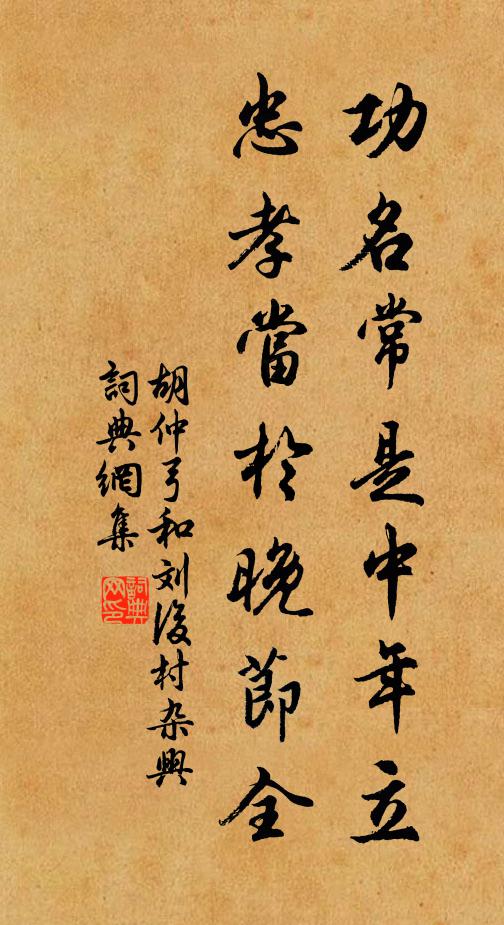 功名常是中年立
忠孝當於晚節全
胡仲弓和刘後村杂興
詞典網集
詞典網印